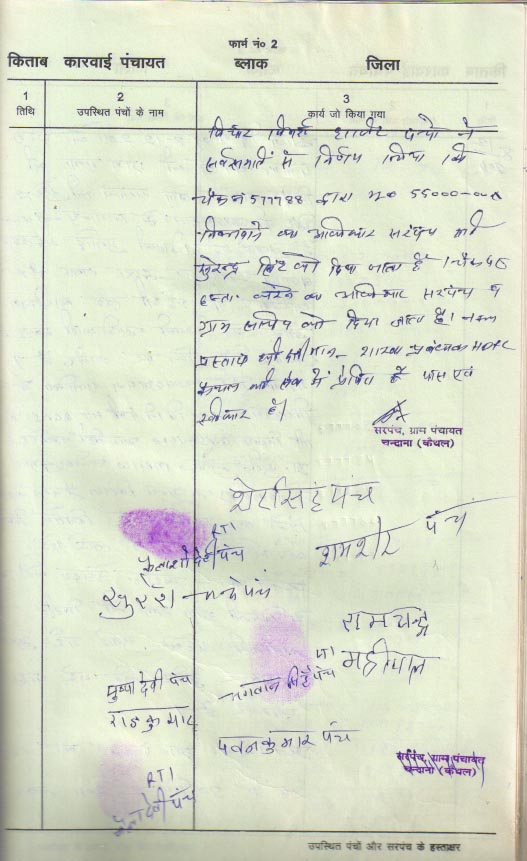 फार्म नं० 2
किताब कारवाई पंचायत ब्लाक जिला
1 2 3
तिथि उपस्थित पंचों के नाम कार्य जो किया गया
विचार विमर्श हाजिर पन्चो ने
सर्वसम्मति से निर्णय लिया कि
चैक नं 577788 द्वारा मु० 55000-00
निकलवाने का अधिकार सरपंच श्री
सुरेन्द्र सिंह को दिया जाता है। चैक पर
हस्ता० करने का अधिकार सरपंच व
ग्राम सचिव को दिया जाता है। नकल
प्रस्ताव श्रीमान शाखा प्रबन्धक HDFC
कैथल की सेवा में प्रेषित है पास एवं
स्वीकार है।
सरपंच, ग्राम पंचायत
चन्दाना (कैथल)
शेरसिंह पंच
RTI
कैलाशो देवी पंच
शमशेर पंच
सुरेश पंच
रामचन्द्र
महीपाल
पुष्पा देवी पंच
भगवान सिंह पंच
राजकुमार
पवनकुमार पंच
सरपंच, ग्राम पंचायत
चन्दाना (कैथल)
RTI
देवी पंच
उपस्थित पंचों और सरपंच के हस्ताक्षर